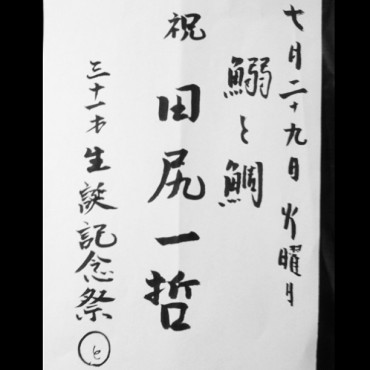 七月二十九日 火曜日
鰯と鯛
祝 田尻一哲
三十一才生誕記念祭
と